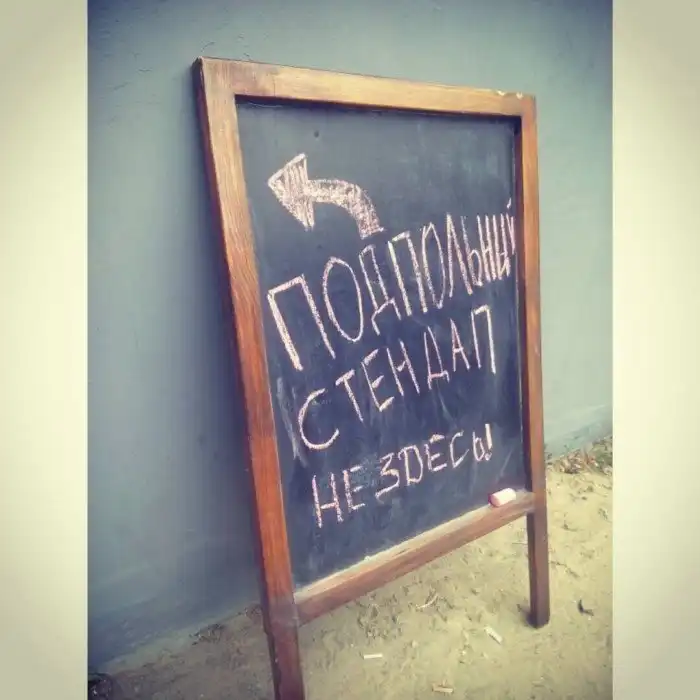 ПОДПОЛЬНЫЙ
СТЕНДАП
НЕ ЗДЕСЬ!